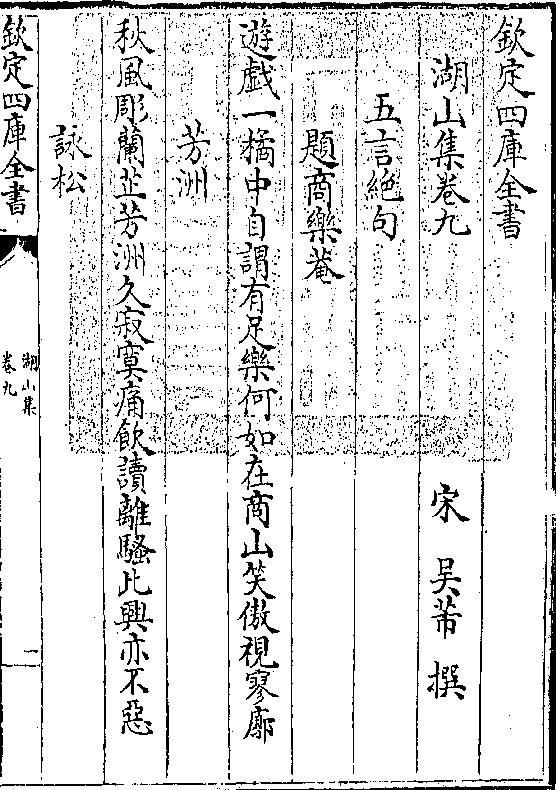 欽定四庫全書
湖山集卷九
宋 吳芾 撰
五言絶句
題商樂菴
遊戲一橘中自謂有足樂何如在商山笑傲視寥廓
芳洲
秋風彫蘭芷芳洲久寂寞痛飲讀離騷比興亦不惡
詠松
欽定四庫全書
湖山集
卷九
一